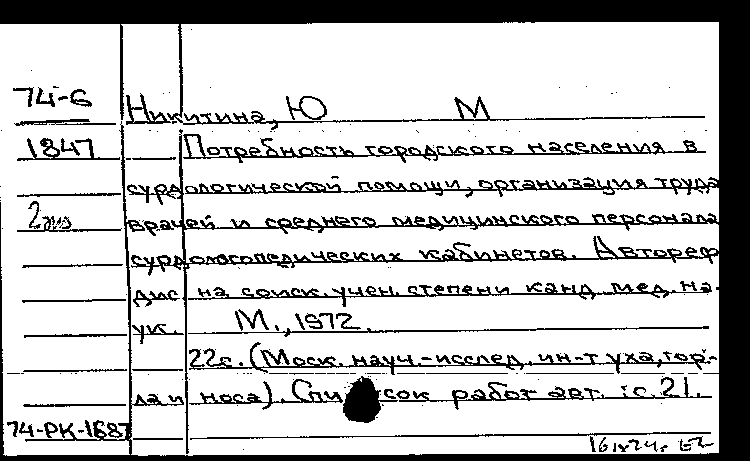 74-6
Никитина, Ю М
1847
Потребность городского населения в
сурдологической помощи, организация труда
2 экз
врачей и среднего медицинского персонала
сурдологопедических кабинетов. Автореф
дис. на соиск. учен. степени канд. мед. на-
ук. М., 1972.
22с. (Моск. науч.-исслед. ин-т уха, гор-
ла и носа). Список работ авт.: с. 21.
74-РК-1687